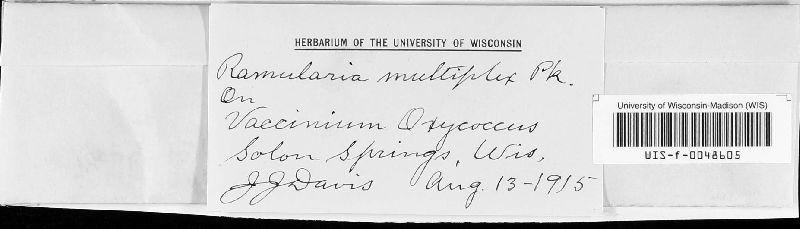 HERBARIUM OF THE UNIVERSITY OF WISCONSIN
Ramularia multiplex Pk.
On
Vaccinium Oxycoccus
Solon Springs, Wis,
J J Davis Aug. 13-1915
University of Wisconsin-Madison (WIS)
WIS-f-0048605